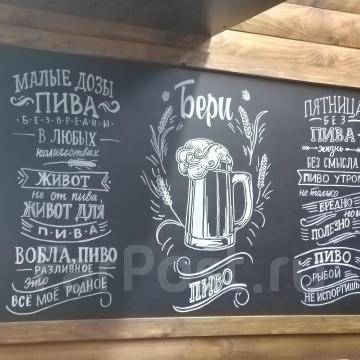 МАЛЫЕ ДОЗЫ
ПИВА
БЕЗВРЕДНЫ
В ЛЮБЫХ
количествах
ЖИВОТ
не от пива,
ЖИВОТ ДЛЯ
ПИВА
ВОБЛА, ПИВО
РАЗЛИВНОЕ
Это
ВСЁ МОЁ РОДНОЕ
Бери
ПИВО
ПЯТНИЦА
БЕЗ
ПИВА
жизнь
БЕЗ СМЫСЛА
ПИВО УТРОМ
не только
ВРЕДНО
но и
ПОЛЕЗНО
ПИВО
РЫБОЙ
НЕ ИСПОРТИШЬ
Post.ru